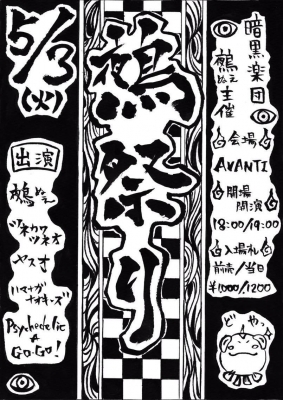 暗黒楽団
鵺ぬえ主催
会場
AVANTI
開場
開演
18:00/19:00
入場札
前売/当日
¥1000/1200
どやっ
鵺祭り
5/3
(火)
出演
鵺ぬえ
ツネカワ
ツネオ
ヤスオ
ハマナガ
ナオキーズ
Psychedelic
☆
GO-GO!